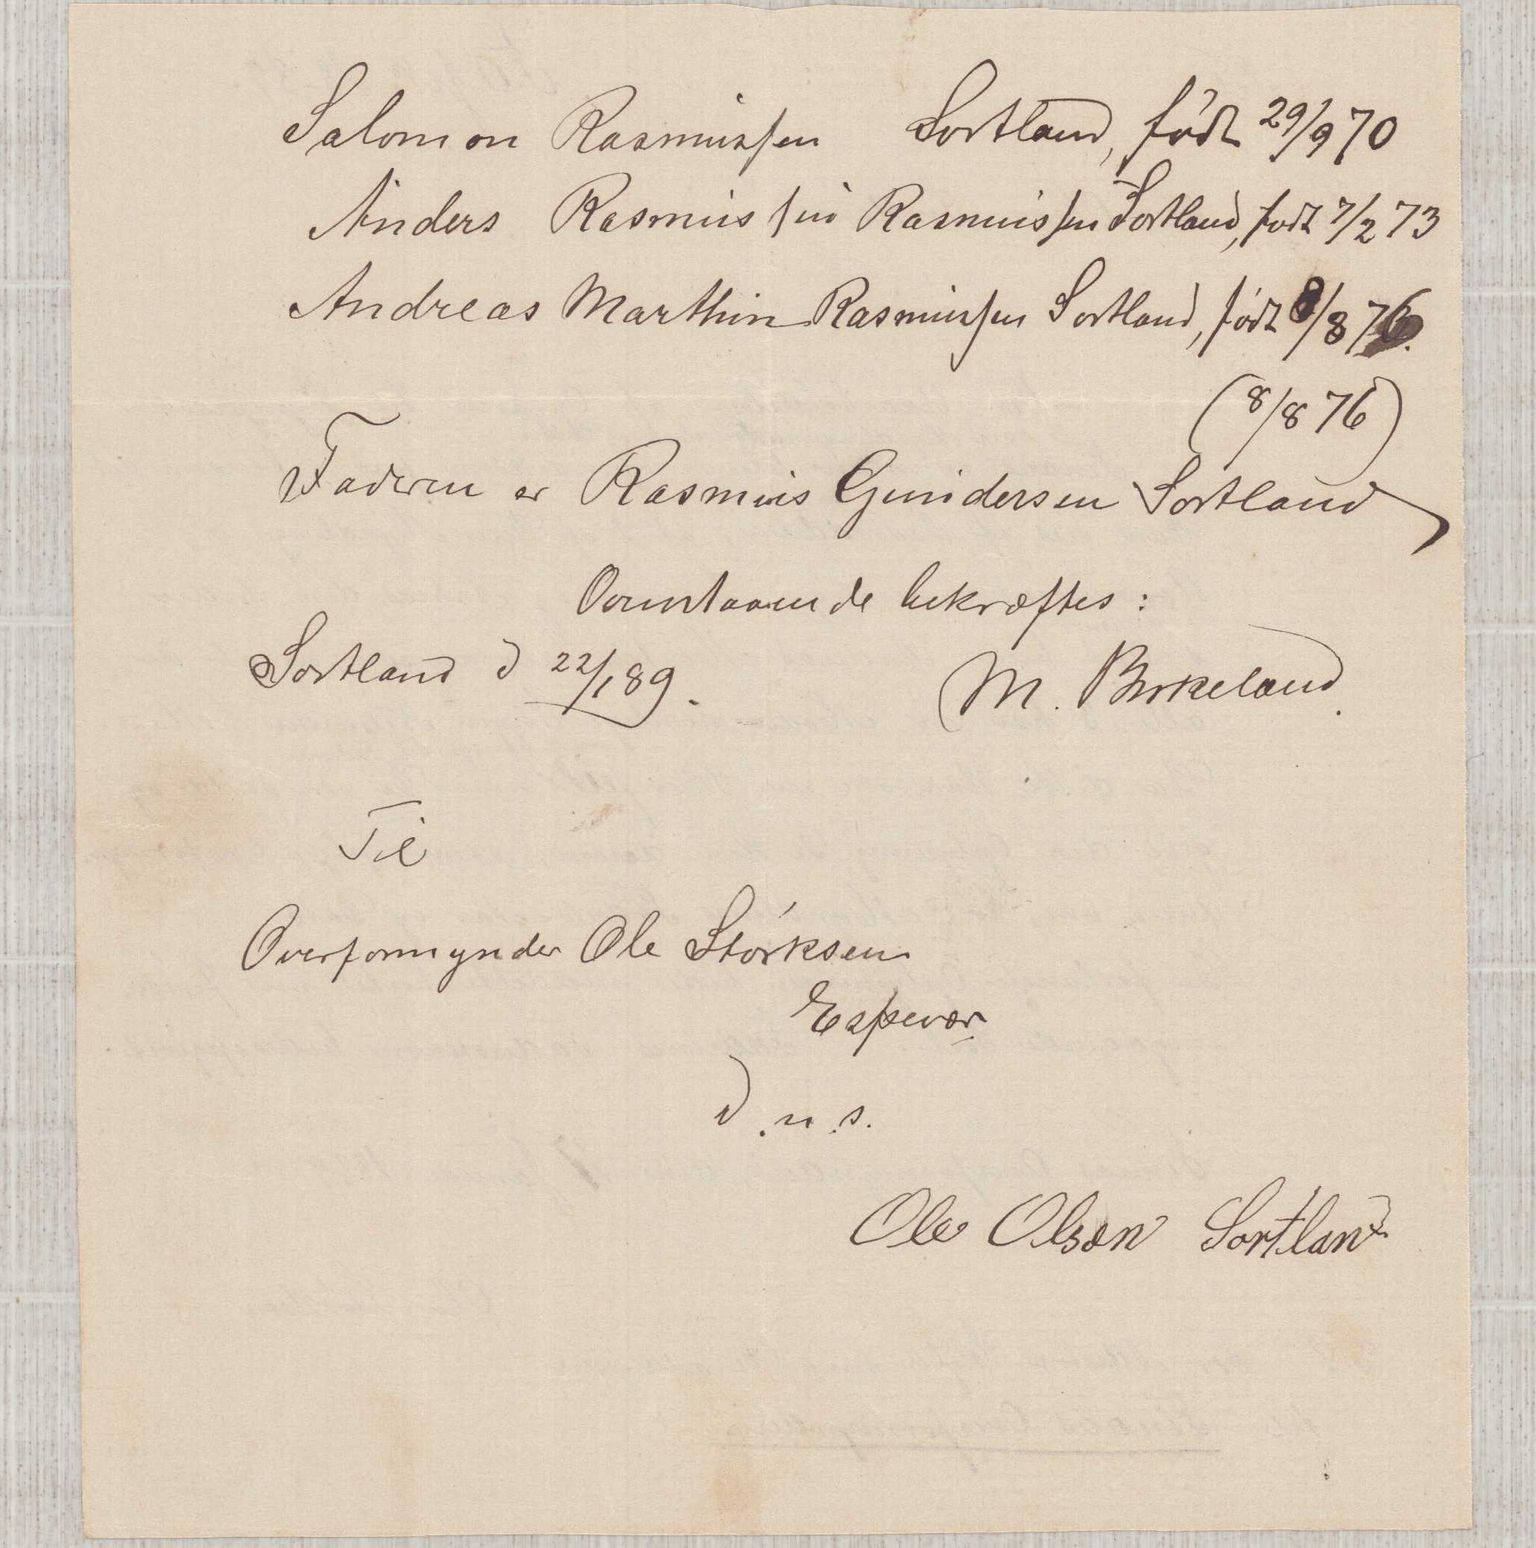 Salomon Rasmussen Sortland, født 29/9 70
Anders Rasmus sin Rasmussen Sortland, født 7/2 73
Andreas Marthin Rasmussen Sortland, født 8/8 76.
(8/8 76)
Faderen er Rasmus Gundersen Sortland
Ovenstaaende bekræftes:
Sortland d 22/1 89. M. Birkeland.
Til
Overformynder Ole Størksen
Espevær
D.n.s.
Ole Olsen Sortland